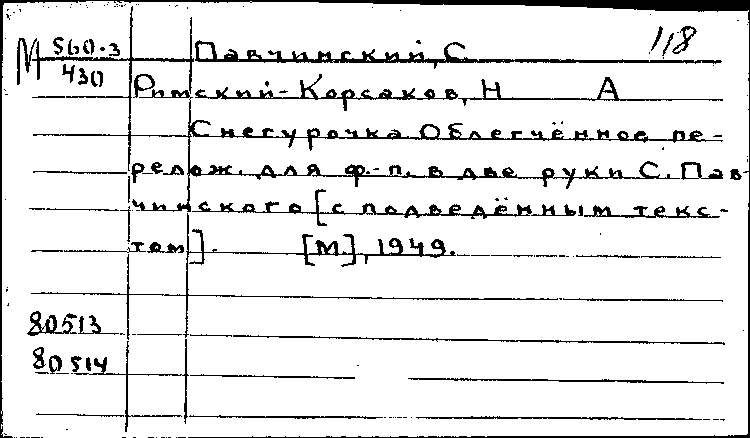 М 560-3 Павчинский, С. 118
430
Римский-Корсаков, Н А
Снегурочка Облегчённое пе-
релож. для ф.-п. в две руки С. Пав-
чинского [с подведённым текс-
том]. [М], 1949.
80513
80514